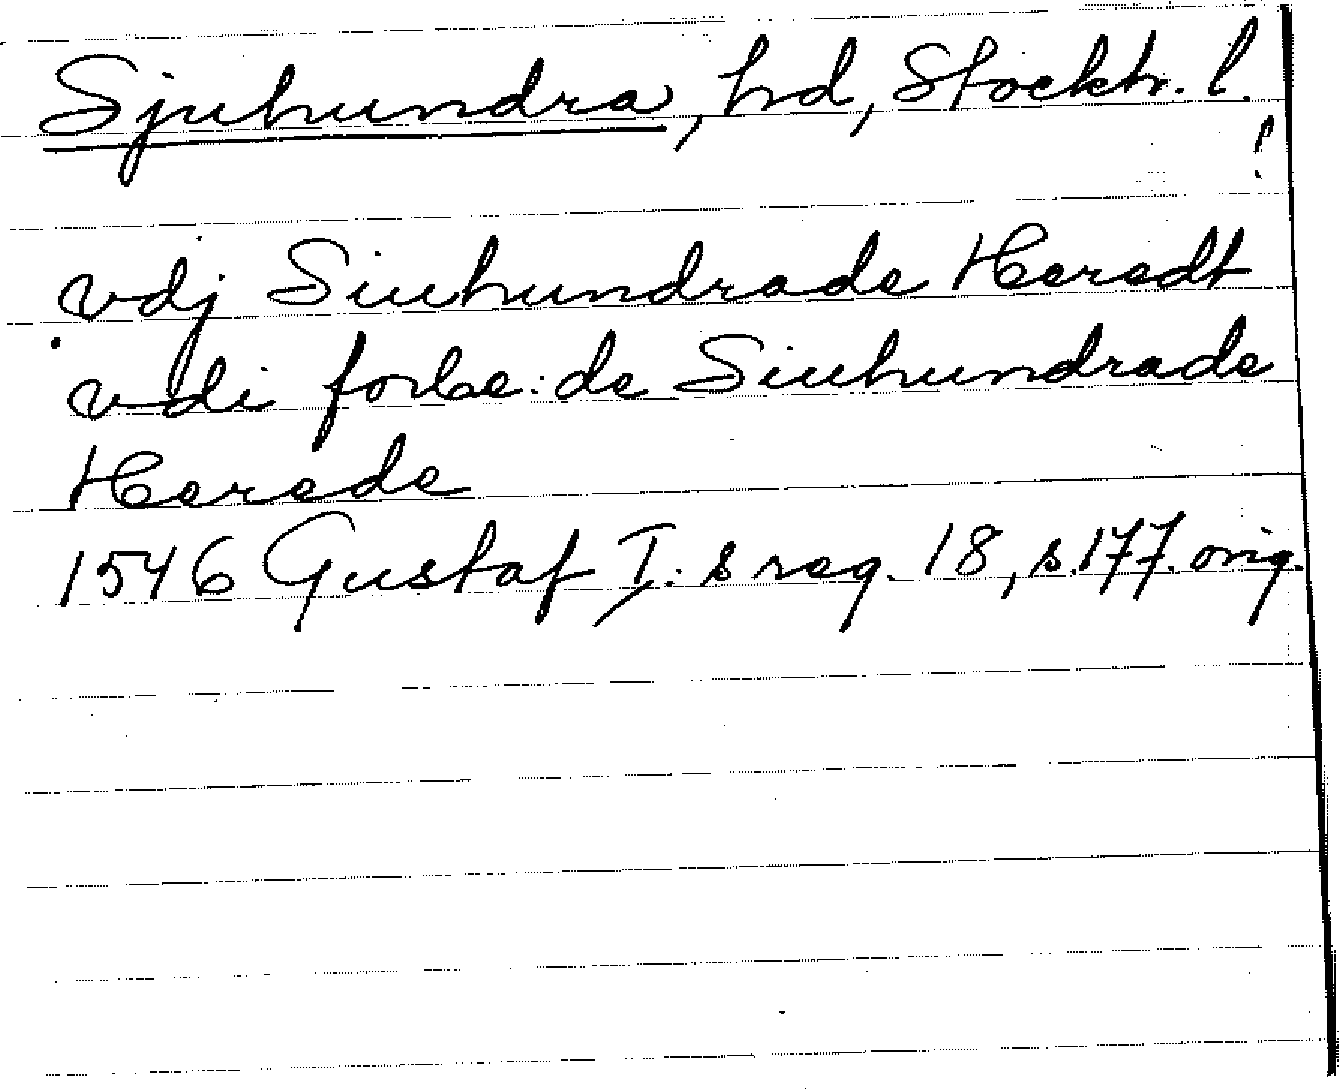 Sjuhundra, hd, Stockh. l.
!
vdj Siuhundrade Heredt
vdi forbe:de Siuhundrade
Herede
1546 Gustaf I:s reg. 18, s.177. orig.